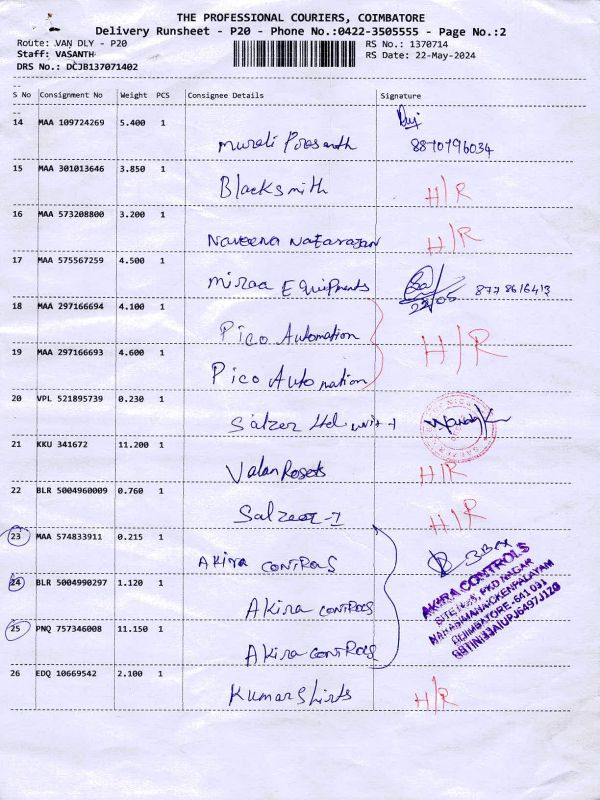 THE PROFESSIONAL COURIERS, COIMBATORE
Delivery Runsheet - P20 - Phone No.:0422-3505555 - Page No.:2
Route: VAN DLY - P20 RS No.: 1370714
Staff: VASANTH RS Date: 22-May-2024
DRS No.: DCJB137071402
S No Consignment No Weight PCS Consignee Details Signature
14 MAA 109724269 5.400 1
Murali Prasanth 8870796034
15 MAA 301013646 3.850 1
Blacksmith H/R
16 MAA 573208800 3.200 1
Naveena Natarajan H/R
17 MAA 575567259 4.500 1
Miraa Equipments 22/05
18 MAA 297166694 4.100 1
Pico Automation
19 MAA 297166693 4.600 1 H/R
Pico Automation
20 VPL 521895739 0.230 1
Salzer Ltd unit-1
21 KKU 341672 11.200 1
Valan Rosets H/R
22 BLR 5004960009 0.760 1
Salzer-1 H/R
23 MAA 574833911 0.215 1
Akira Controls
24 BLR 5004990297 1.120 1
Akira Controls
AKIRA CONTROLS
SITE No.5, PKD NAGAR
MAHASIMANAICKENPALAYAM
COIMBATORE-641 031
25 PNQ 757346008 11.150 1
Akira Controls
26 EDQ 10669542 2.100 1
Kumar Shirts H/R